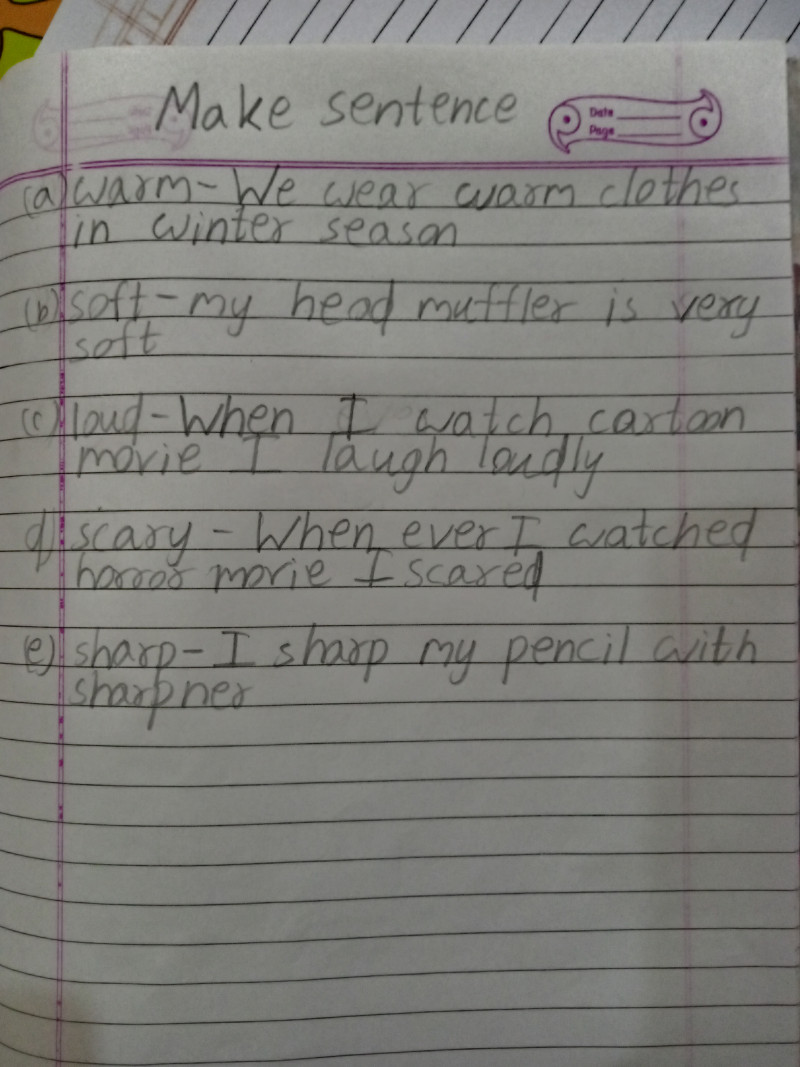 Make sentence
Date
Page
(a) warm - We wear warm clothes
in winter season
(b) soft - my head muffler is very
soft
(c) loud - When I watch cartoon
movie I laugh loudly
d) scary - When ever I watched
horror movie I scared
e) sharp - I sharp my pencil with
sharpner